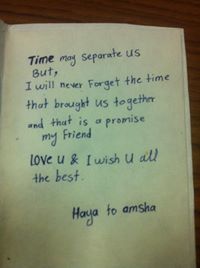 Time may separate us
But,
I will never Forget the time
that brought us together
and that is a promise
my Friend
love u & I wish U all
the best.
Haya to amsha